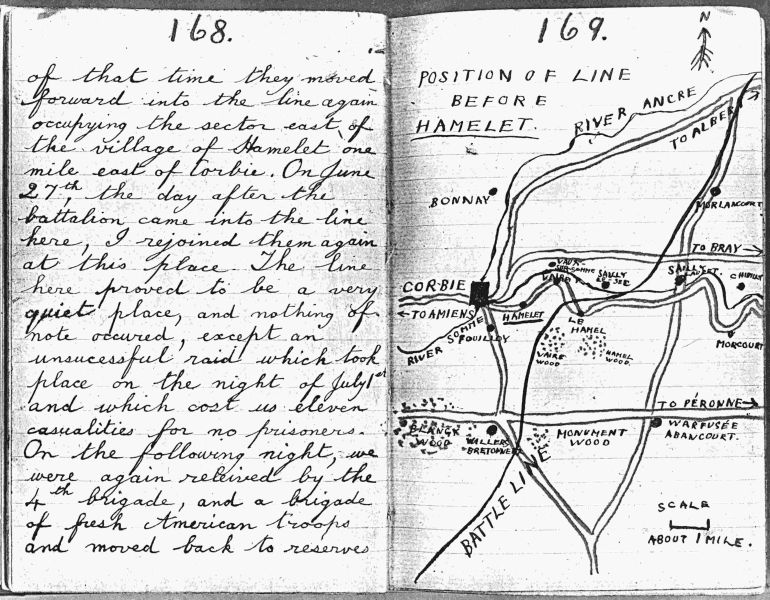 168.
of that time they moved
forward into the line again
occupying the sector east of
the village of Hamelet, one
mile east of Corbie. On June
27th, the day after the
battalion came into the line
here, I rejoined them again
at this place. The line
here proved to be a very
quiet place, and nothing of
note occured, except an
unsucessful raid which took
place on the night of July 1st
and which cost us eleven
casualities for no prisoners.
On the following night, we
were again releived by the
4th brigade, and a brigade
of fresh American troops
and moved back to reserves
169.
N
POSITION OF LINE
BEFORE
HAMELET.
RIVER ANCRE
TO ALBERT
BONNAY
MORLANCOURT
TO BRAY
CORBIE
VAUX-
SUR-SOMME
SAILLY
LE-SEC
SAILLY
CHIPILLY
TO AMIENS
HAMELET
LE
HAMEL
RIVER SOMME
FOUILLOY
VAIRE
WOOD
HAMEL
WOOD.
MORCOURT
TO PÉRONNE
BLANGY
WOOD
VILLERS
BRETONNEUX
MONUMENT
WOOD
WARFUSÉE
ABANCOURT.
BATTLE LINE
SCALE
ABOUT 1 MILE.